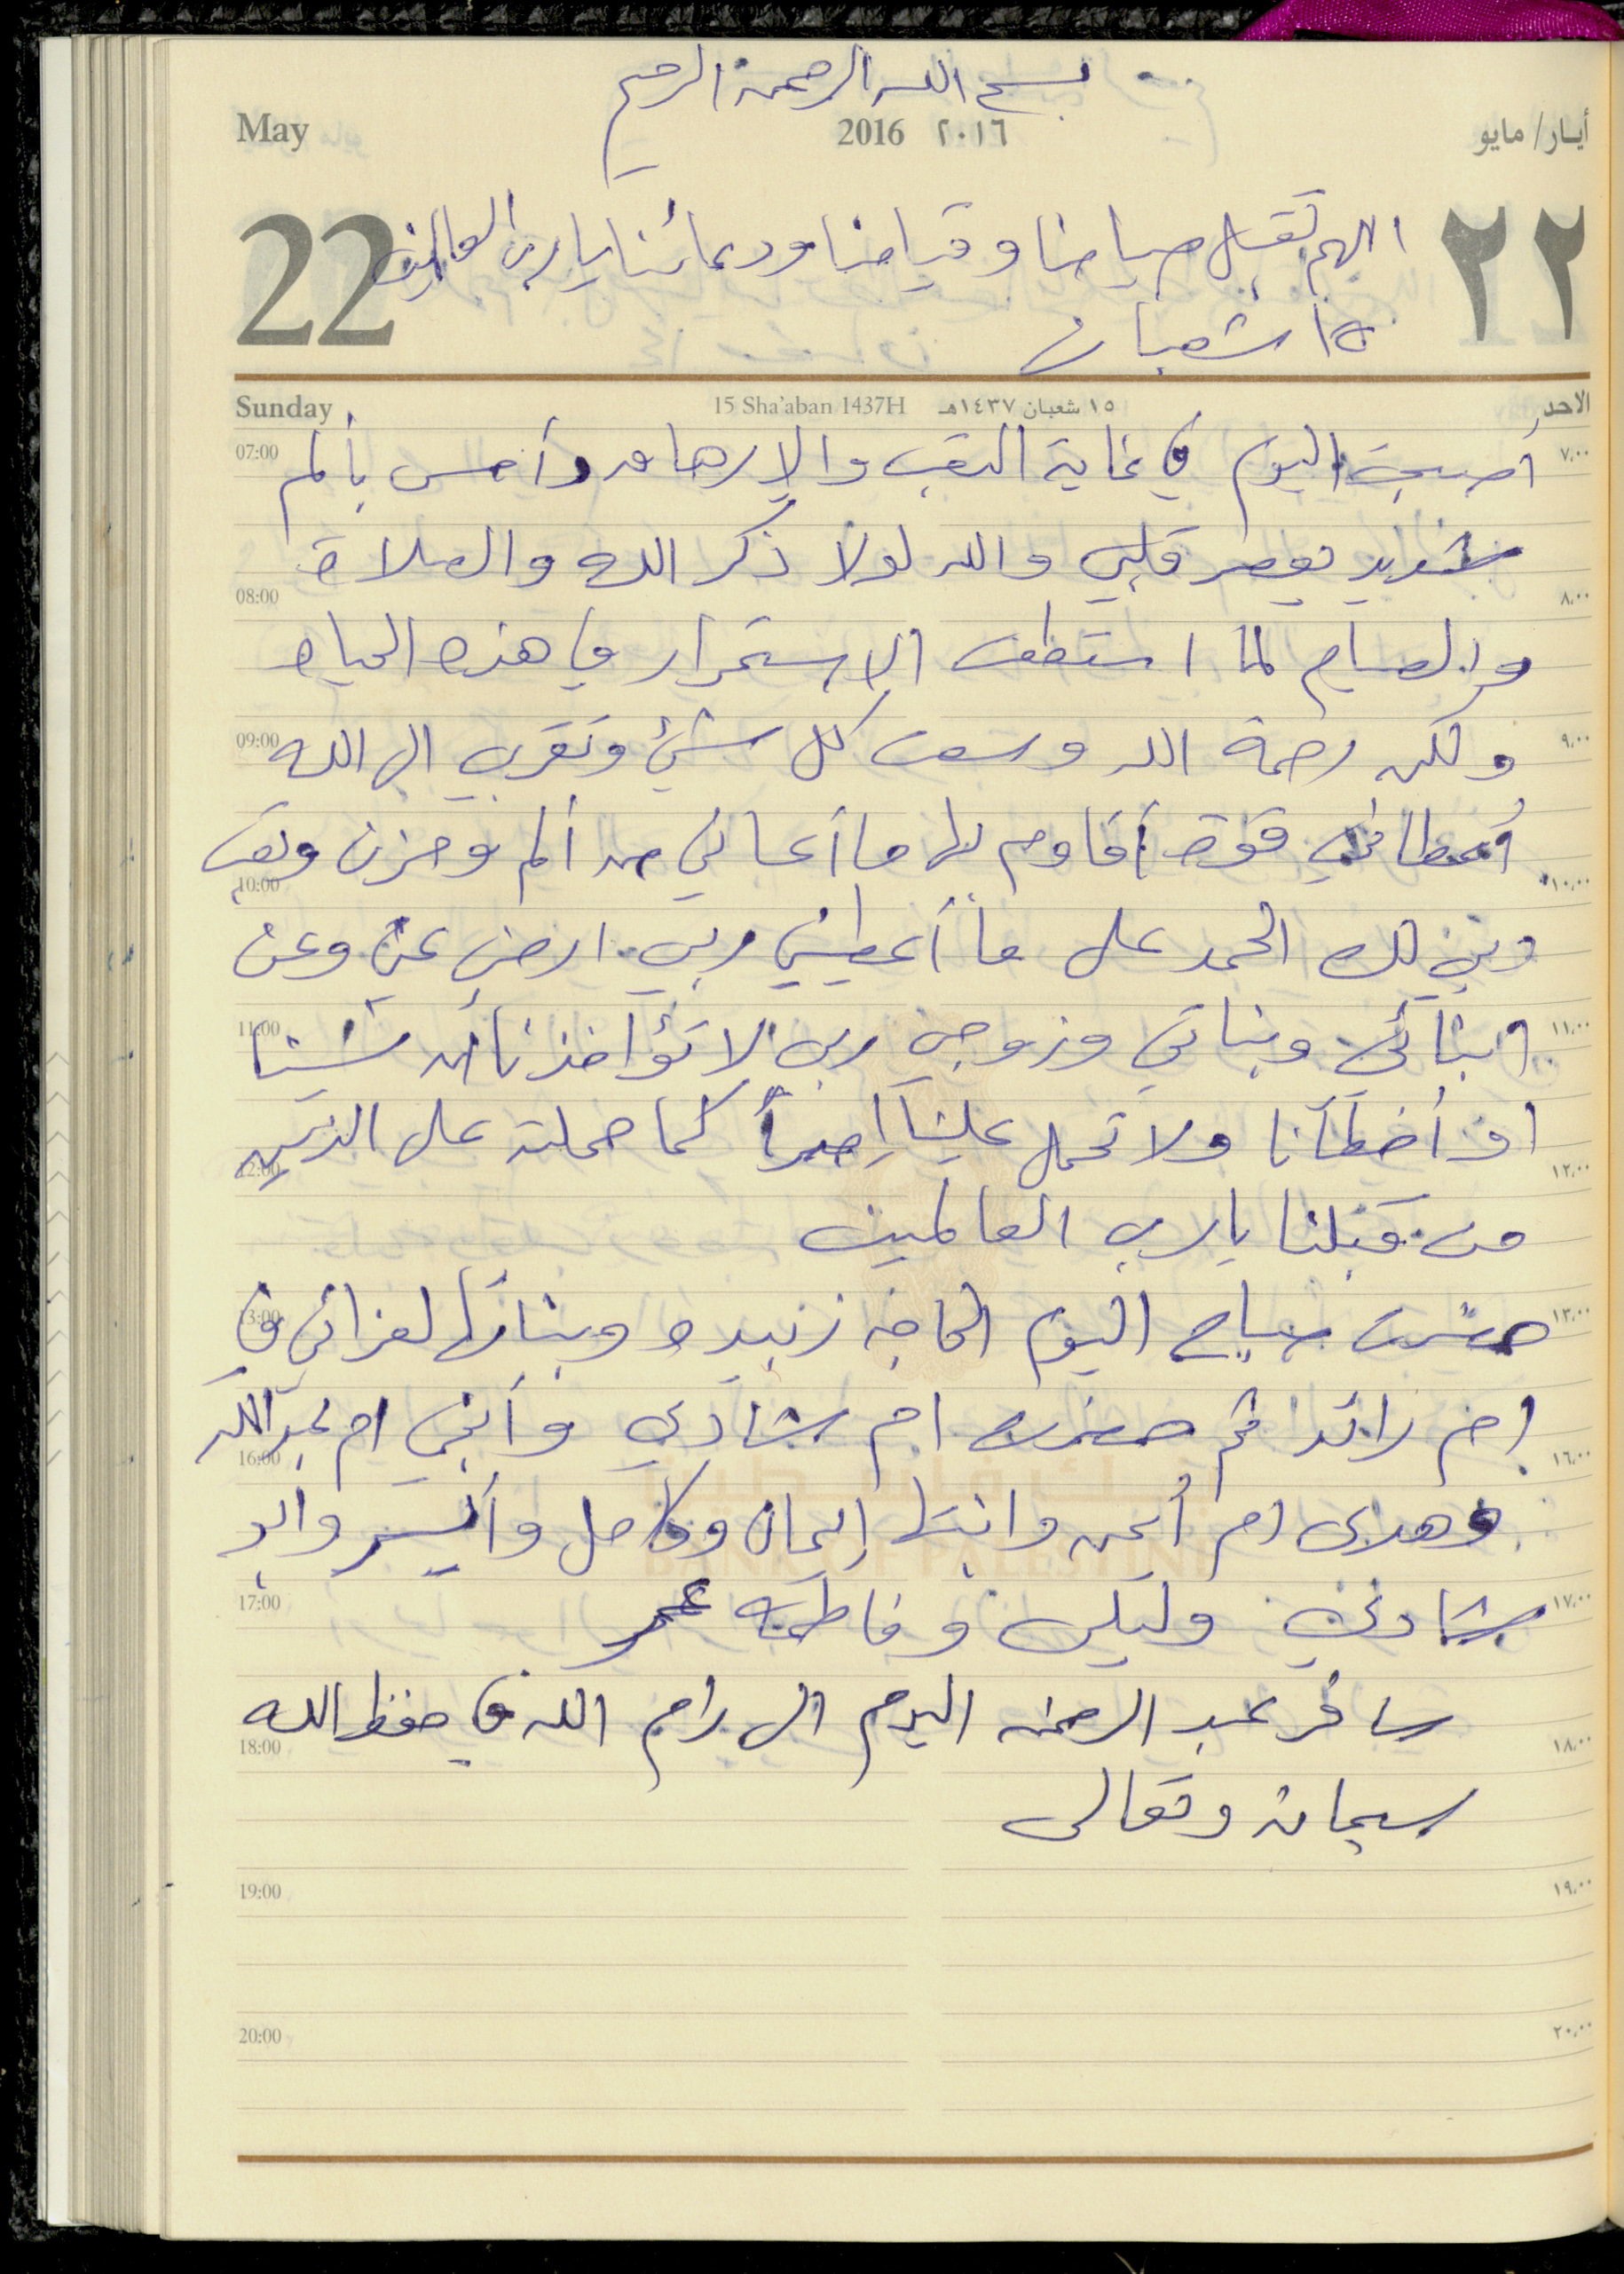 بسم الله الرحمن الرحيم
May 2016 ٢٠١٦ أيـار/ مايو
22 اللهم تقبل صيامنا وقيامنا ودعائنا يا رب العالمين ٢٢
١٥ شعبان
Sunday 15 Sha'aban 1437H ١٥ شعبان ١٤٣٧هـ الاحد
07:00 أصبحت اليوم في غاية التعب والإرهاق وأحس بألم ٧،٠٠
شديد يعصر قلبي والله لولا ذكر الله والصلاة
08:00 ٨،٠٠
والصيام لما استطعت الاستمرار في هذه الحياه
09:00 ولكن رحمة الله وسعت كل شيئ وتقربي الى الله ٩،٠٠
أعطاني قوة أقاوم بها ما أعاني من ألم وحزن وتعب
10:00 ١٠،٠٠
ربي لك الحمد على ما أعطيتني ربي ارضى عني وعن
11:00 ابنائي وبناتي وزوجي ربي لا تؤاخذنا أن نسينا ١١،٠٠
او أخطأنا ولا تحمل علينا إصراً كما حملته على الذين
12:00 ١٢،٠٠
من قبلنا يا رب العالمين
13:00 حضرت صباح اليوم الحاجه زبيده وبناتها لعزائي في ١٣،٠٠
رائد ثم حضرت ام شادي وأختي ام عبدالله
16:00 ١٦،٠٠
BANK OF PALESTINE
وهدى ام أيمن وابنتها إيمان وكامل وأيسر وابو
17:00 شادي وليلى وفاطمه عمر ١٧،٠٠
سافر عبد الرحمن اليوم الى رام الله في حفظ الله
18:00 ١٨،٠٠
سبحانه وتعالى
19:00 ١٩،٠٠
20:00 ٢٠،٠٠